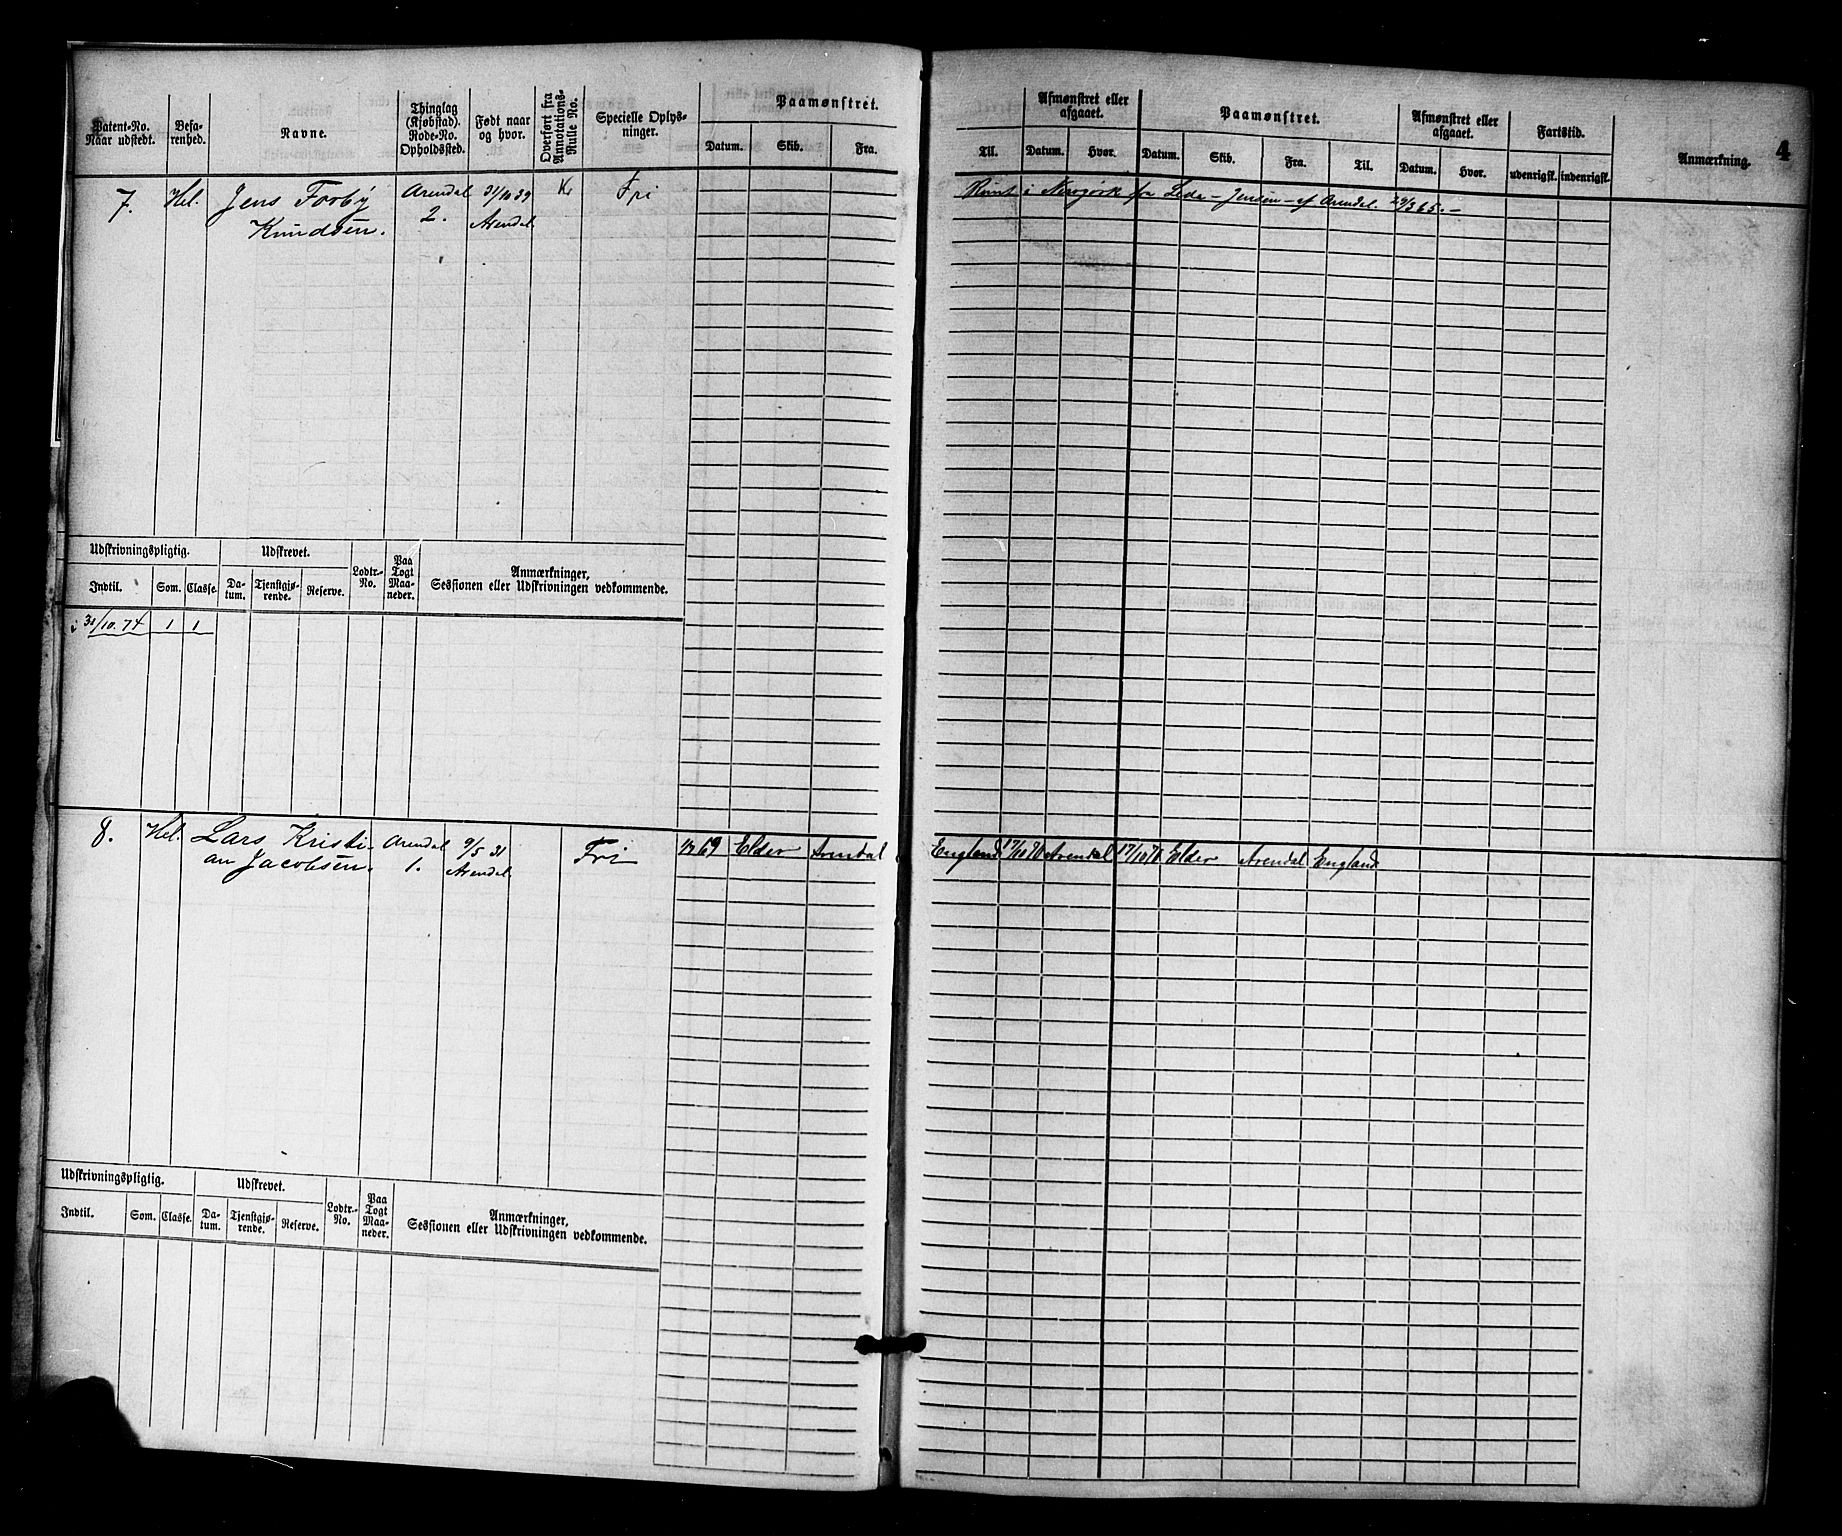 Patent-No. Naar udstedt. Befa-renhed. Navne. Thinglag (Kjøbstad). Rode-No. Opholdssted. Født naar og hvor. Overført fra Annotations-Rulle No. Specielle Oplysninger. Paamønstret. Datum. Skib. Fra.
Til. Afmønstret eller afgaaet. Datum. Hvor. Paamønstret. Datum. Skib. Fra. Til. Afmønstret eller afgaaet. Datum. Hvor. Fartstid. udenrigsk. indenrigsk. Anmærkning. 4
7. Hel. Jens Forby Arendal 31/10 39 Fri
Knudsen. 2. Arendal
Rømt i Newyork fra Leda - Jensen - af Arendal. 29/3 65. -
Udskrivningspligtig. Udskrevet. Lodtr-No. Paa Togt Maa-neder. Anmærkninger,
Indtil. Som. Classe. Da-tum. Tjenstgjø-rende. Reserve. Sessionen eller Udskrivningen vedkommende.
31/10. 74 1 1
8. Hel. Lars Kristi- Arendal 9/5 31 Fri 69 Elder Arendal England 17/10 70 Arendal 17/10 70 Elder Arendal England
an Jacobsen. 1. Arendal
Udskrivningspligtig. Udskrevet. Lodtr-No. Paa Togt Maa-neder. Anmærkninger,
Indtil. Som. Classe. Da-tum. Tjenstgjø-rende. Reserve. Sessionen eller Udskrivningen vedkommende.